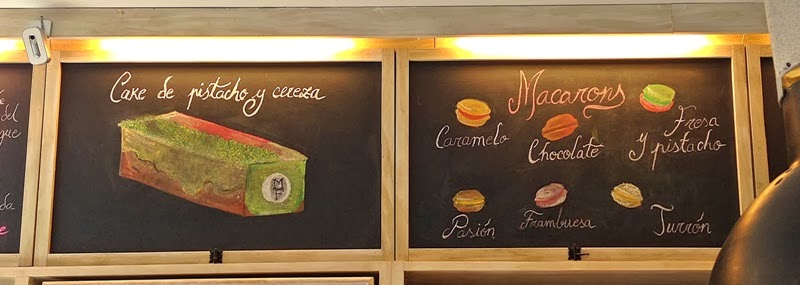 del
gue
da
Cake de pistacho y cereza
MF
Macarons
Caramelo
Chocolate
Fresa
y pistacho
Pasión
Frambuesa
Turrón